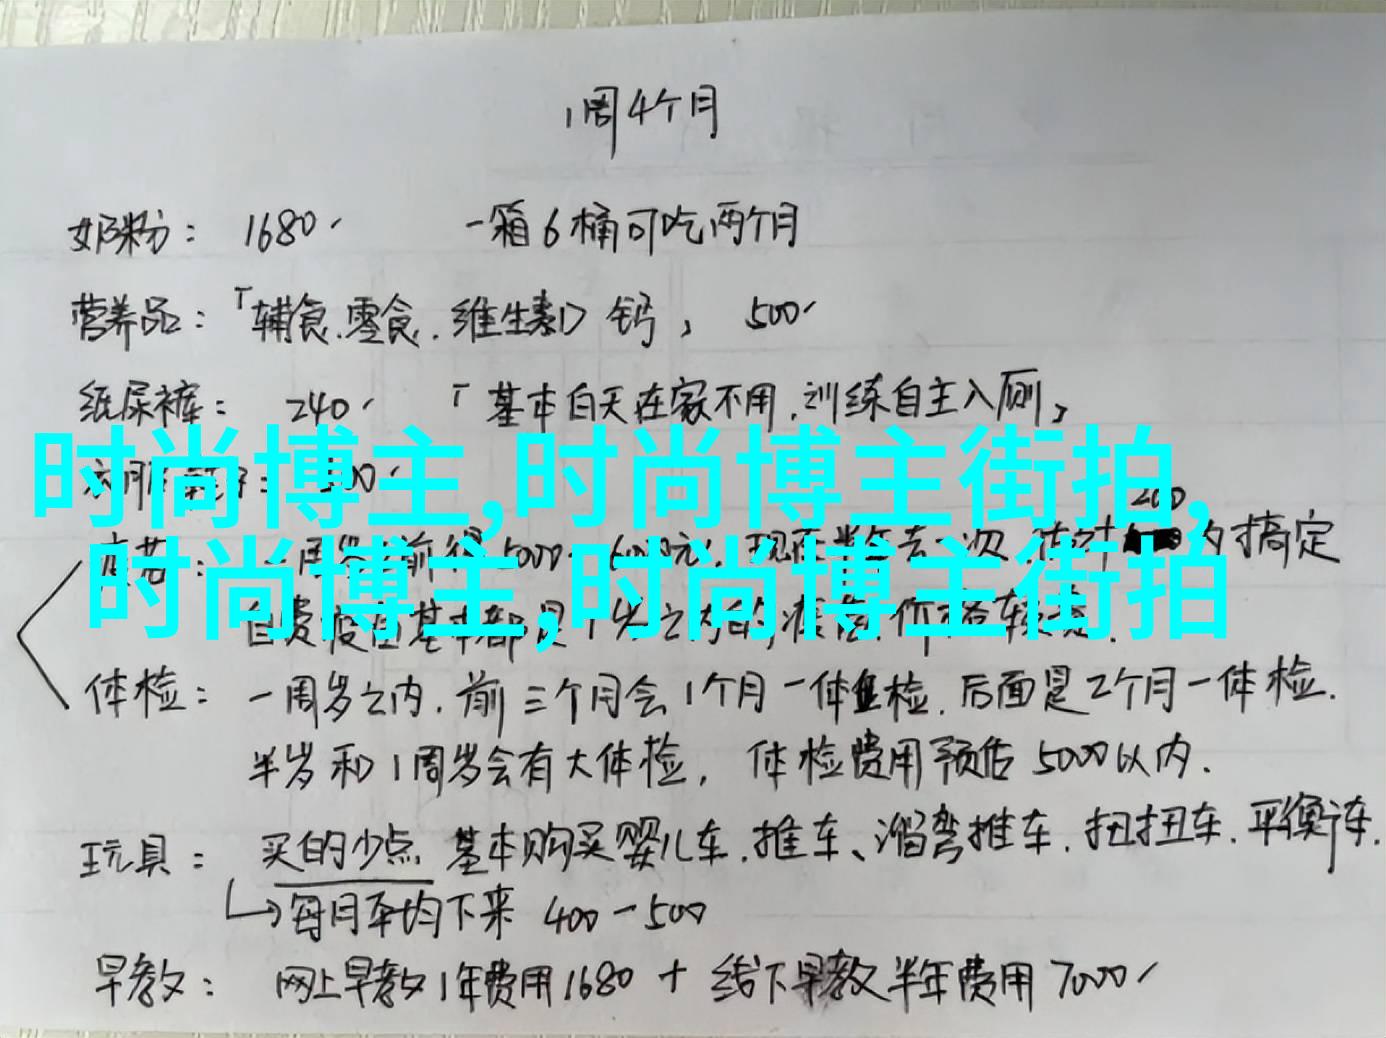 1周4个月
奶粉： 1680 一箱6桶可吃两个月
营养品：「辅食.零食.维生素D 钙」 500
纸尿裤： 240 「基本白天在家不用.训练自主入厕」
时尚博主,时尚博主街拍,
200
内搞定
时尚博主,时尚博主街拍
体检： 一周岁之内.前三个月会1个月一体检.后面是2个月一体检.
半岁和1周岁会有大体检, 体检费用预估5000以内.
玩具： 买的少点 基本购买婴儿车.推车、溜弯推车.扭扭车.平衡车.
每月平均下来 400-500
早教： 网上早教1年费用1680 + 线下早教半年费用7000